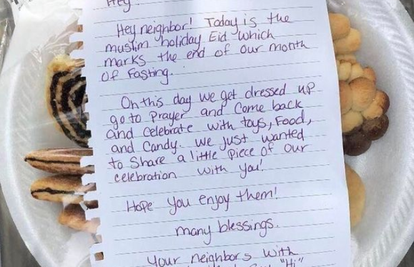 Hey
Hey neighbor! Today is the
muslim holiday Eid which
marks the end of our month
of Fasting.
On this day we get dressed up
go to Prayer and Come back
and celebrate with toys, Food,
and Candy. We just wanted
to Share a little piece of our
celebration with you!
Hope you enjoy them!
many blessings.
Your neighbors with
"Hi"